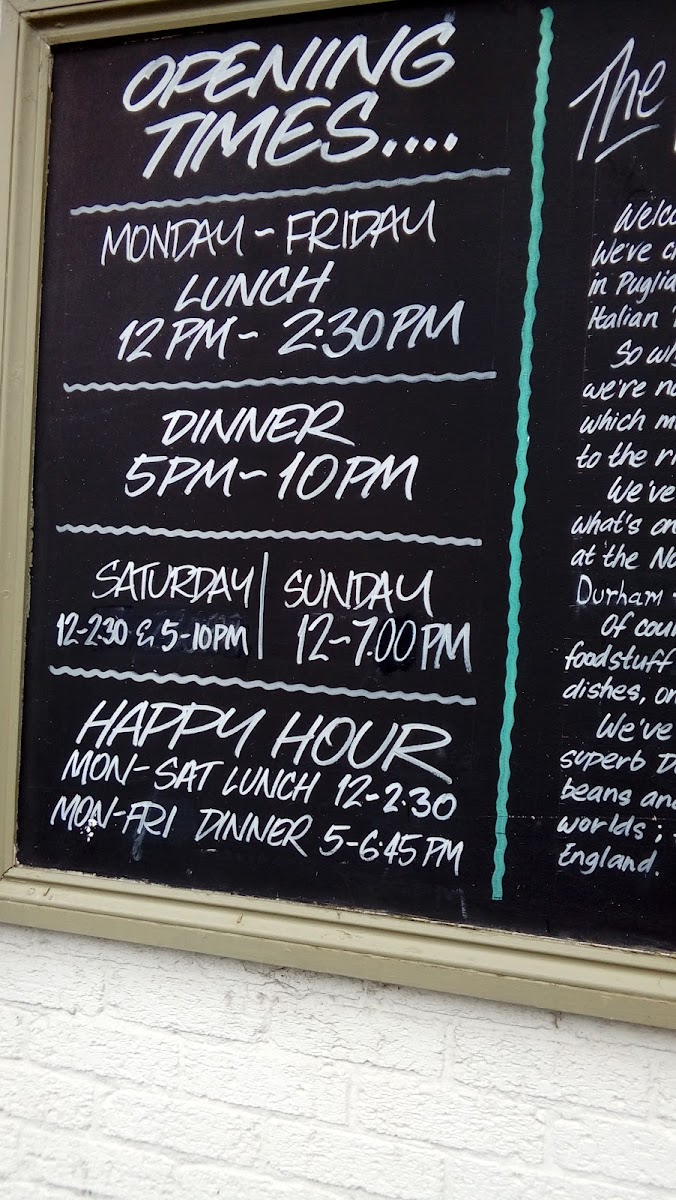 OPENING
TIMES....
MONDAY - FRIDAY
LUNCH
12PM - 2.30PM
DINNER
5PM - 10PM
SATURDAY
12-2.30 & 5-10PM
SUNDAY
12-7.00PM
HAPPY HOUR
MON-SAT LUNCH 12-2.30
MON-FRI DINNER 5-6:45PM
The
We've
in Puglia
Italian
So
we're
which
to the
We've
what's
at the
Durham
Of
foodstuff
dishes,
We've
superb
beans
worlds;
England.